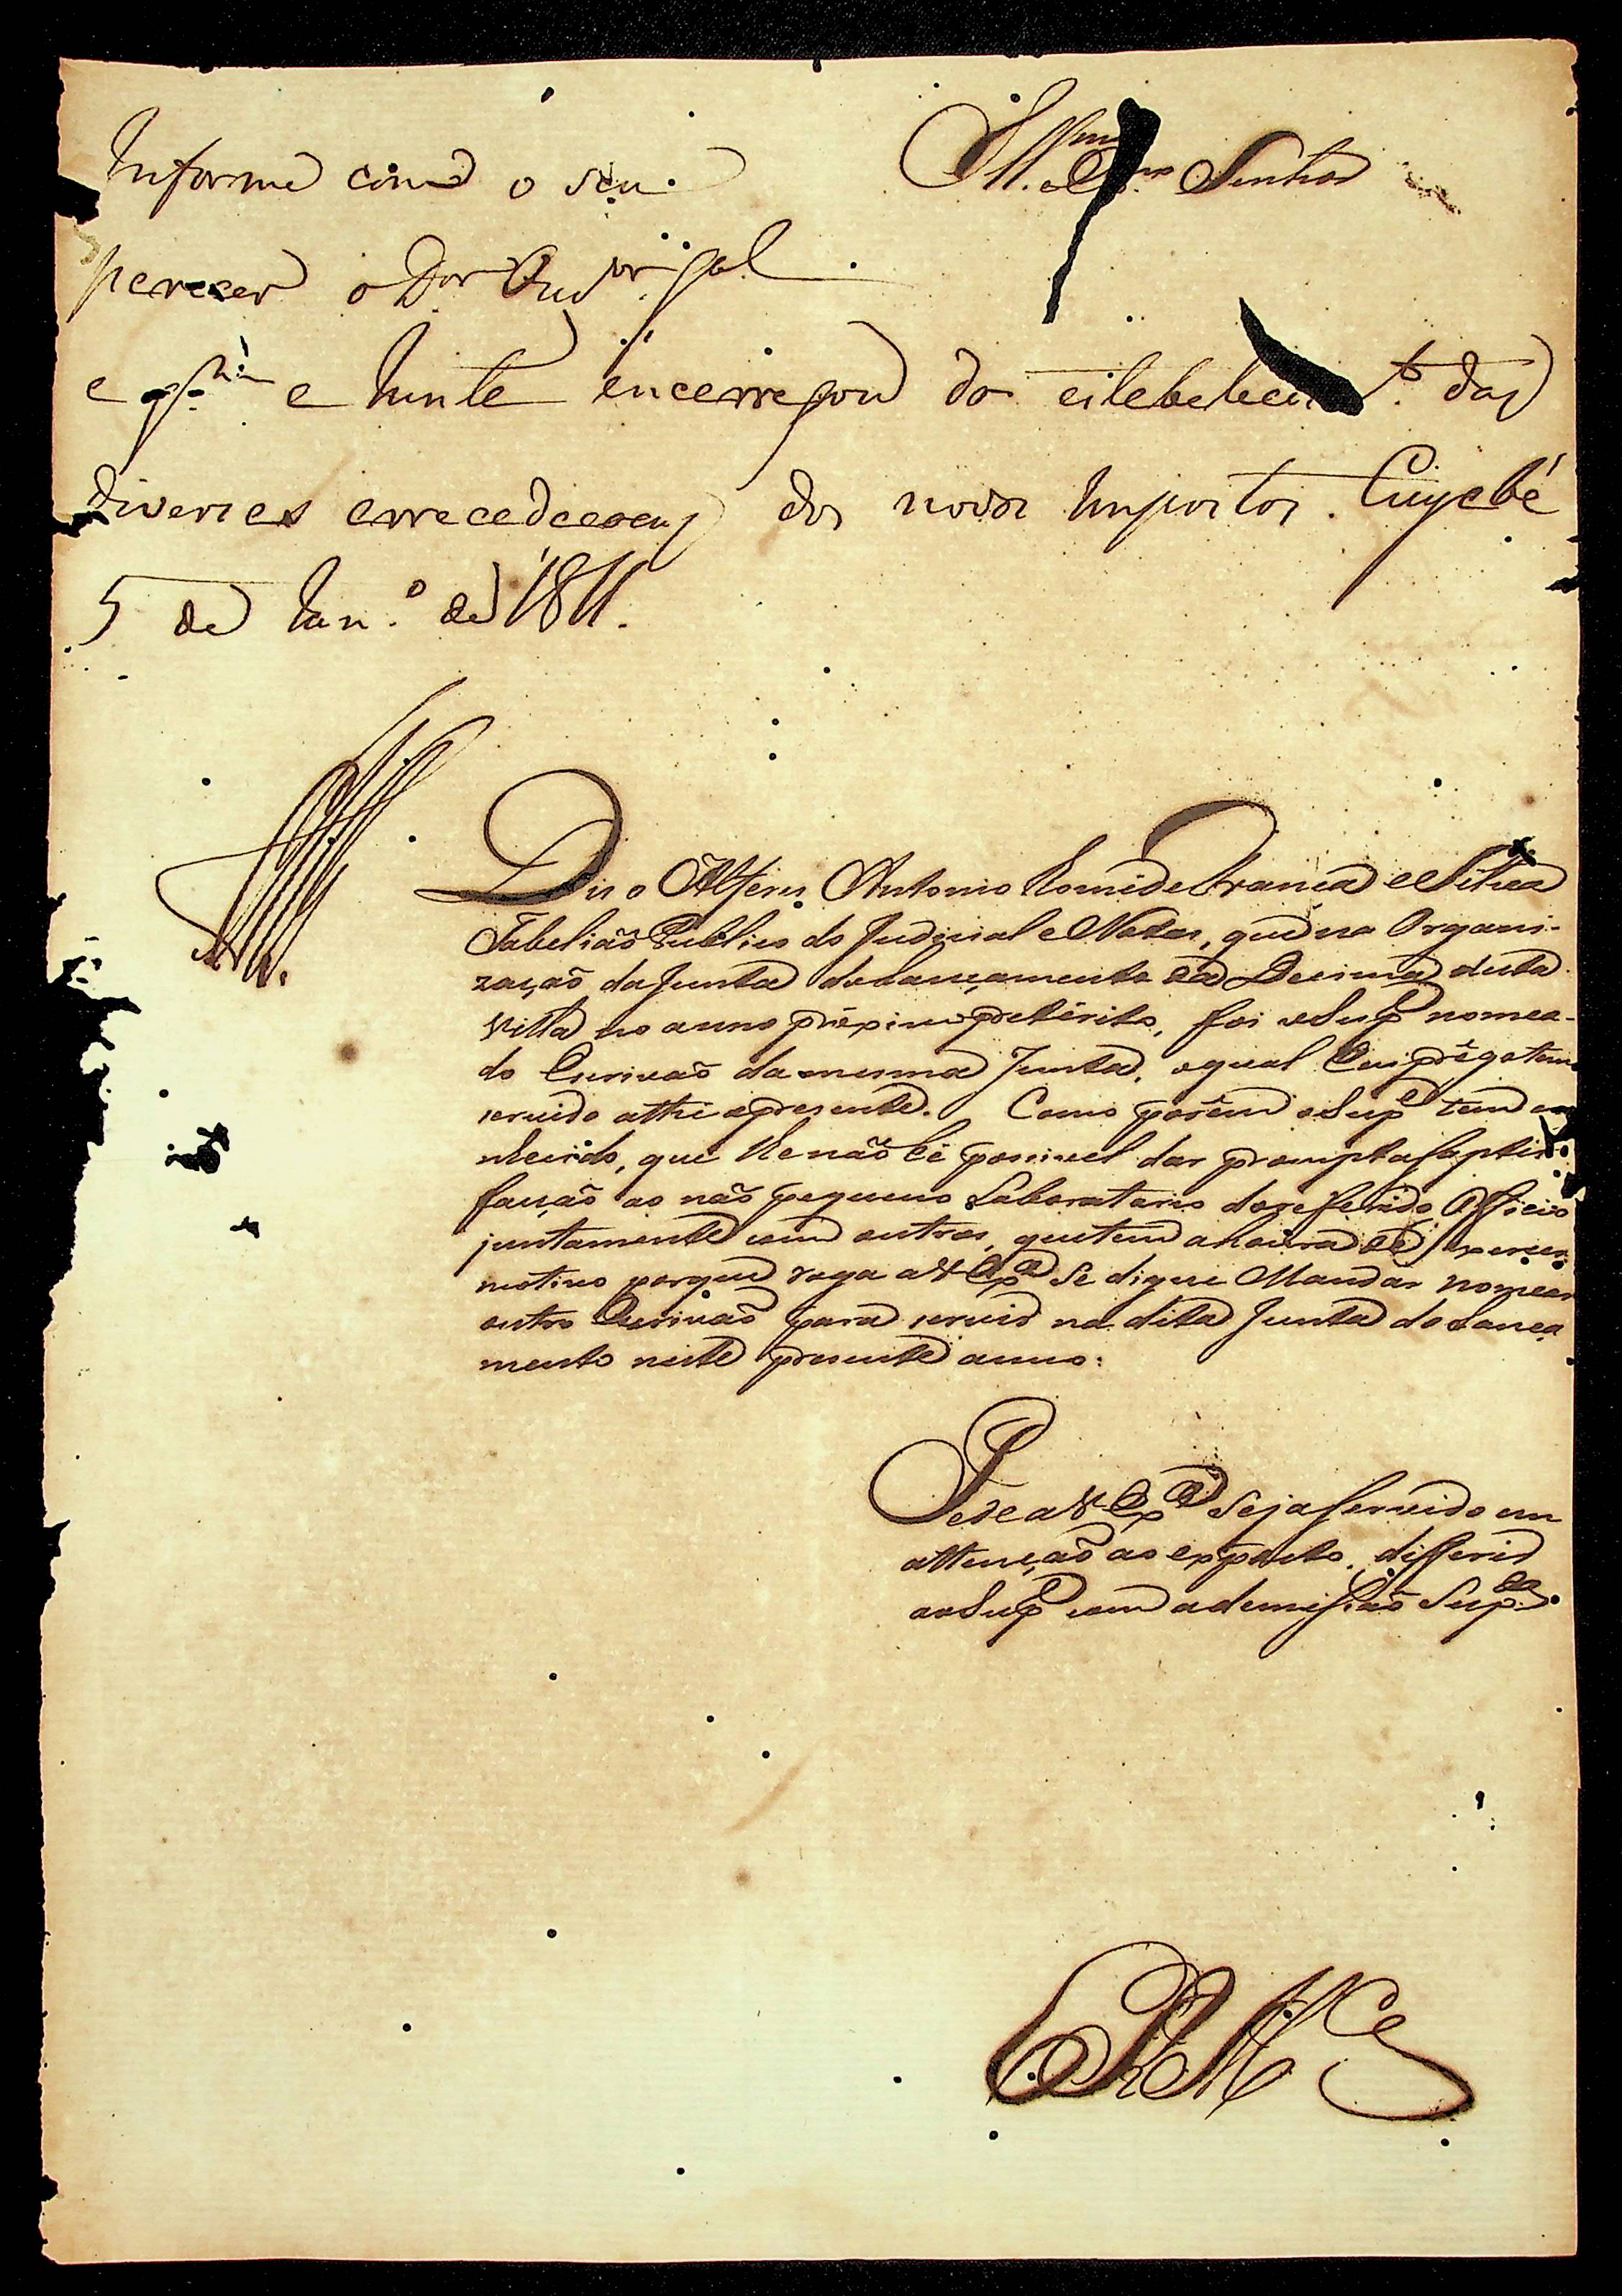 Ill.mo e Ex.mo Senhor
Informe com o seu
parecer o D.or Ouv.or g.al
e Junta encarregad do estabelecim.to das
diversas arrecadaçoens dos novos Impostos. Cuyabá
5 de Jan.o de 1811.
Diz o Alferes Antonio Thomé de França e Silva
Tabelião Publico do Judicial e Notas, que na Organi-
zação da Junta do Lançamento da Decima desta
Villa no anno próximo pretérito, foi o Sup.e nomea-
do Escrivaõ da mesma Junta, o qual Emprêgo tem
servido athe o presente. Como porém o Sup.e tem co
nhecido, que lhe não hé possivel dar prompta saptis
façaõ ao não pequeno Laboratorio do referido Officio
juntamente com outros, que tem a honra de exercer
motivo porque roga a V Ex.a Se digne Mandar nomear
outro Escrivaõ para servir na dita Junta do Lança
mento neste presente anno:
Pede a V Ex.a Seja servido em
attençaõ ao exposto, differir
ao Sup.e com a demissaõ Sup.da
E R M.ce